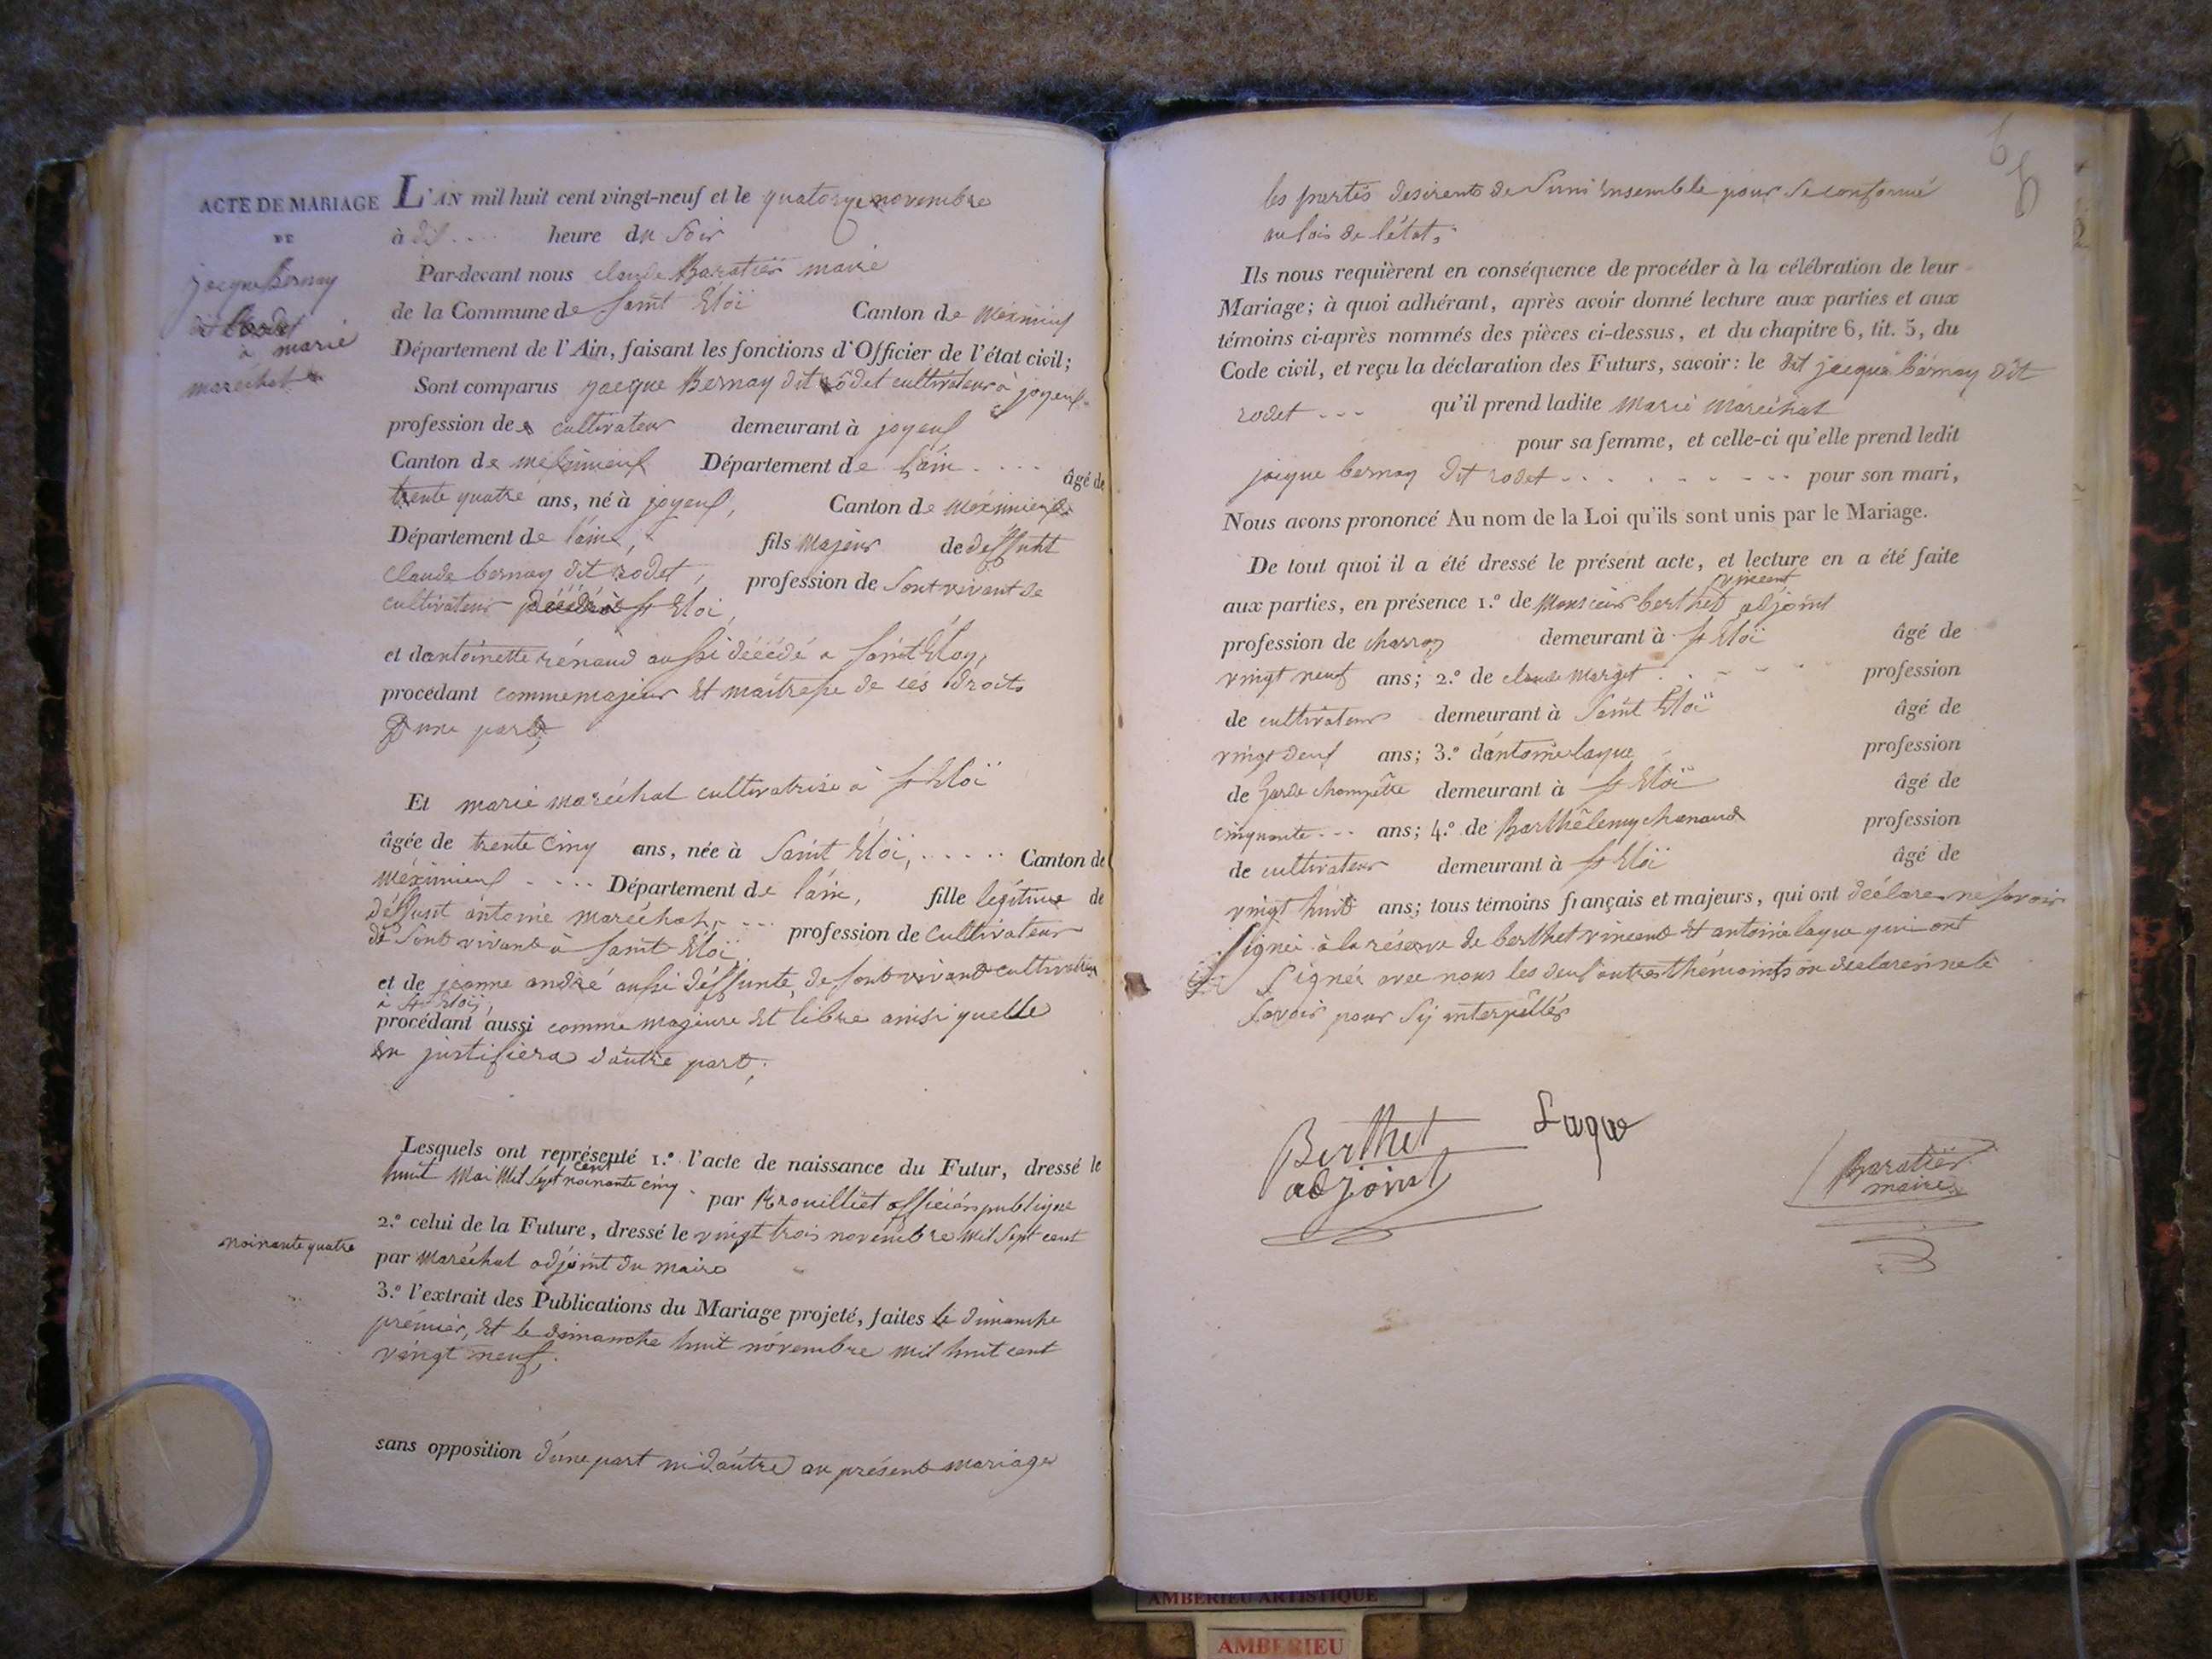 ACTE DE MARIAGE
DE
jacque Bernay
dit Rodet
à marie
maréchal
L'AN mil huit cent vingt-neuf et le quatorze novembre
à dix .... heure du soir
Par-devant nous claude Baratier maire
de la Commune de saint Eloï Canton de méximieux
Département de l'Ain, faisant les fonctions d'Officier de l'état civil;
Sont comparus jacque Bernay dit rôdet cultivateur à joyeux
profession de cultivateur demeurant à joyeux
Canton de meximieux Département de l'ain .... âgé de
trente quatre ans, né à joyeux, Canton de méximieux
Département de l'ain, fils majeur de deffunt
claude bernay dit rodet, profession de sont vivant de
cultivateur décédé à st Eloi,
et dantoinette rénaud aussi décédé a saint Eloy,
procédant comme majeur et maitresse de ces droits
D'une part,
Et marie maréchal cultivatrise à st Eloï
âgée de trente cinq ans, née à saint Eloï, ..... Canton de
méximieux .... Département de l'ain, fille légitime de
déffunt antoine maréchal, --- profession de cultivateur
de sont vivant à saint Eloï,
et de jeanne andré aussi déffunte, de sont vivant cultivatrise
à st Eloi,
procédant aussi comme majeure et libre ainsi quelle
en justifiera d'autre part;
Lesquels ont représenté 1.º l'acte de naissance du Futur, dressé le
huit mai mil sept cent noinante cinq - par Brouilliet officier publique
2.º celui de la Future, dressé le vingt trois novembre mil sept cent
noinante quatre
par maréchal adjoint du maire
3.º l'extrait des Publications du Mariage projeté, faites le dimanche
prémier, et le dimanche huit novembre mil huit cent
vingt neuf,
sans opposition d'une part ni d'autre au présent mariage
les partis desirents de s'uni ensemble pour se conformé
au lois de l'état,
Ils nous requièrent en conséquence de procéder à la célébration de leur
Mariage; à quoi adhérant, après avoir donné lecture aux parties et aux
témoins ci-après nommés des pièces ci-dessus, et du chapitre 6, tit. 5, du
Code civil, et reçu la déclaration des Futurs, savoir: le dit jacque bernay dit
rodet --- qu'il prend ladite marie maréchal
pour sa femme, et celle-ci qu'elle prend ledit
jacque bernay dit rodet - - - - - - - - pour son mari,
Nous avons prononcé Au nom de la Loi qu'ils sont unis par le Mariage.
De tout quoi il a été dressé le présent acte, et lecture en a été faite
aux parties, en présence 1.º de monsieur berthet vincent adjoint
profession de charron demeurant à st Eloï âgé de
vingt neuf ans; 2.º de claude marget profession
de cultivateur demeurant à saint Eloï âgé de
vingt deux ans; 3.º dantoine laque profession
de garde champêtre demeurant à st Eloï âgé de
cinquante --- ans; 4.º de Barthêlemy chanaud profession
de cultivateur demeurant à st Eloï âgé de
vingt huit ans; tous témoins français et majeurs, qui ont déclare ne savoir
signée à la réserve de berthet vincent et antoine laque qui ont
signée avec nous les deux autres thémoints on declarer ne le
savoir pour s'ÿ interpéllés
Berthet
adjoint
Laque
Baratier
maire
AMBERIEU ARTISTIQUE
AMBERIEU